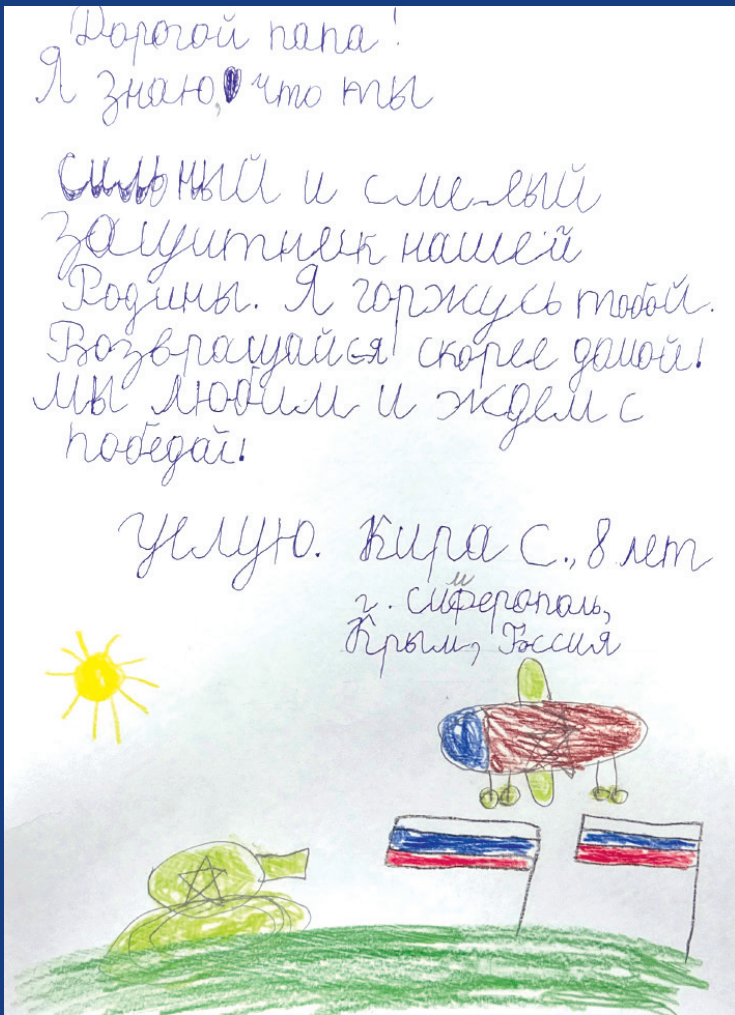 Дорогой папа!
Я знаю, что ты
сильный и смелый
защитник нашей
Родины. Я горжусь тобой.
Возвращайся скорее домой!
Мы любим и ждем с
победай!
Целую. Кира С., 8 лет
г. Симферополь,
Крым, Россия